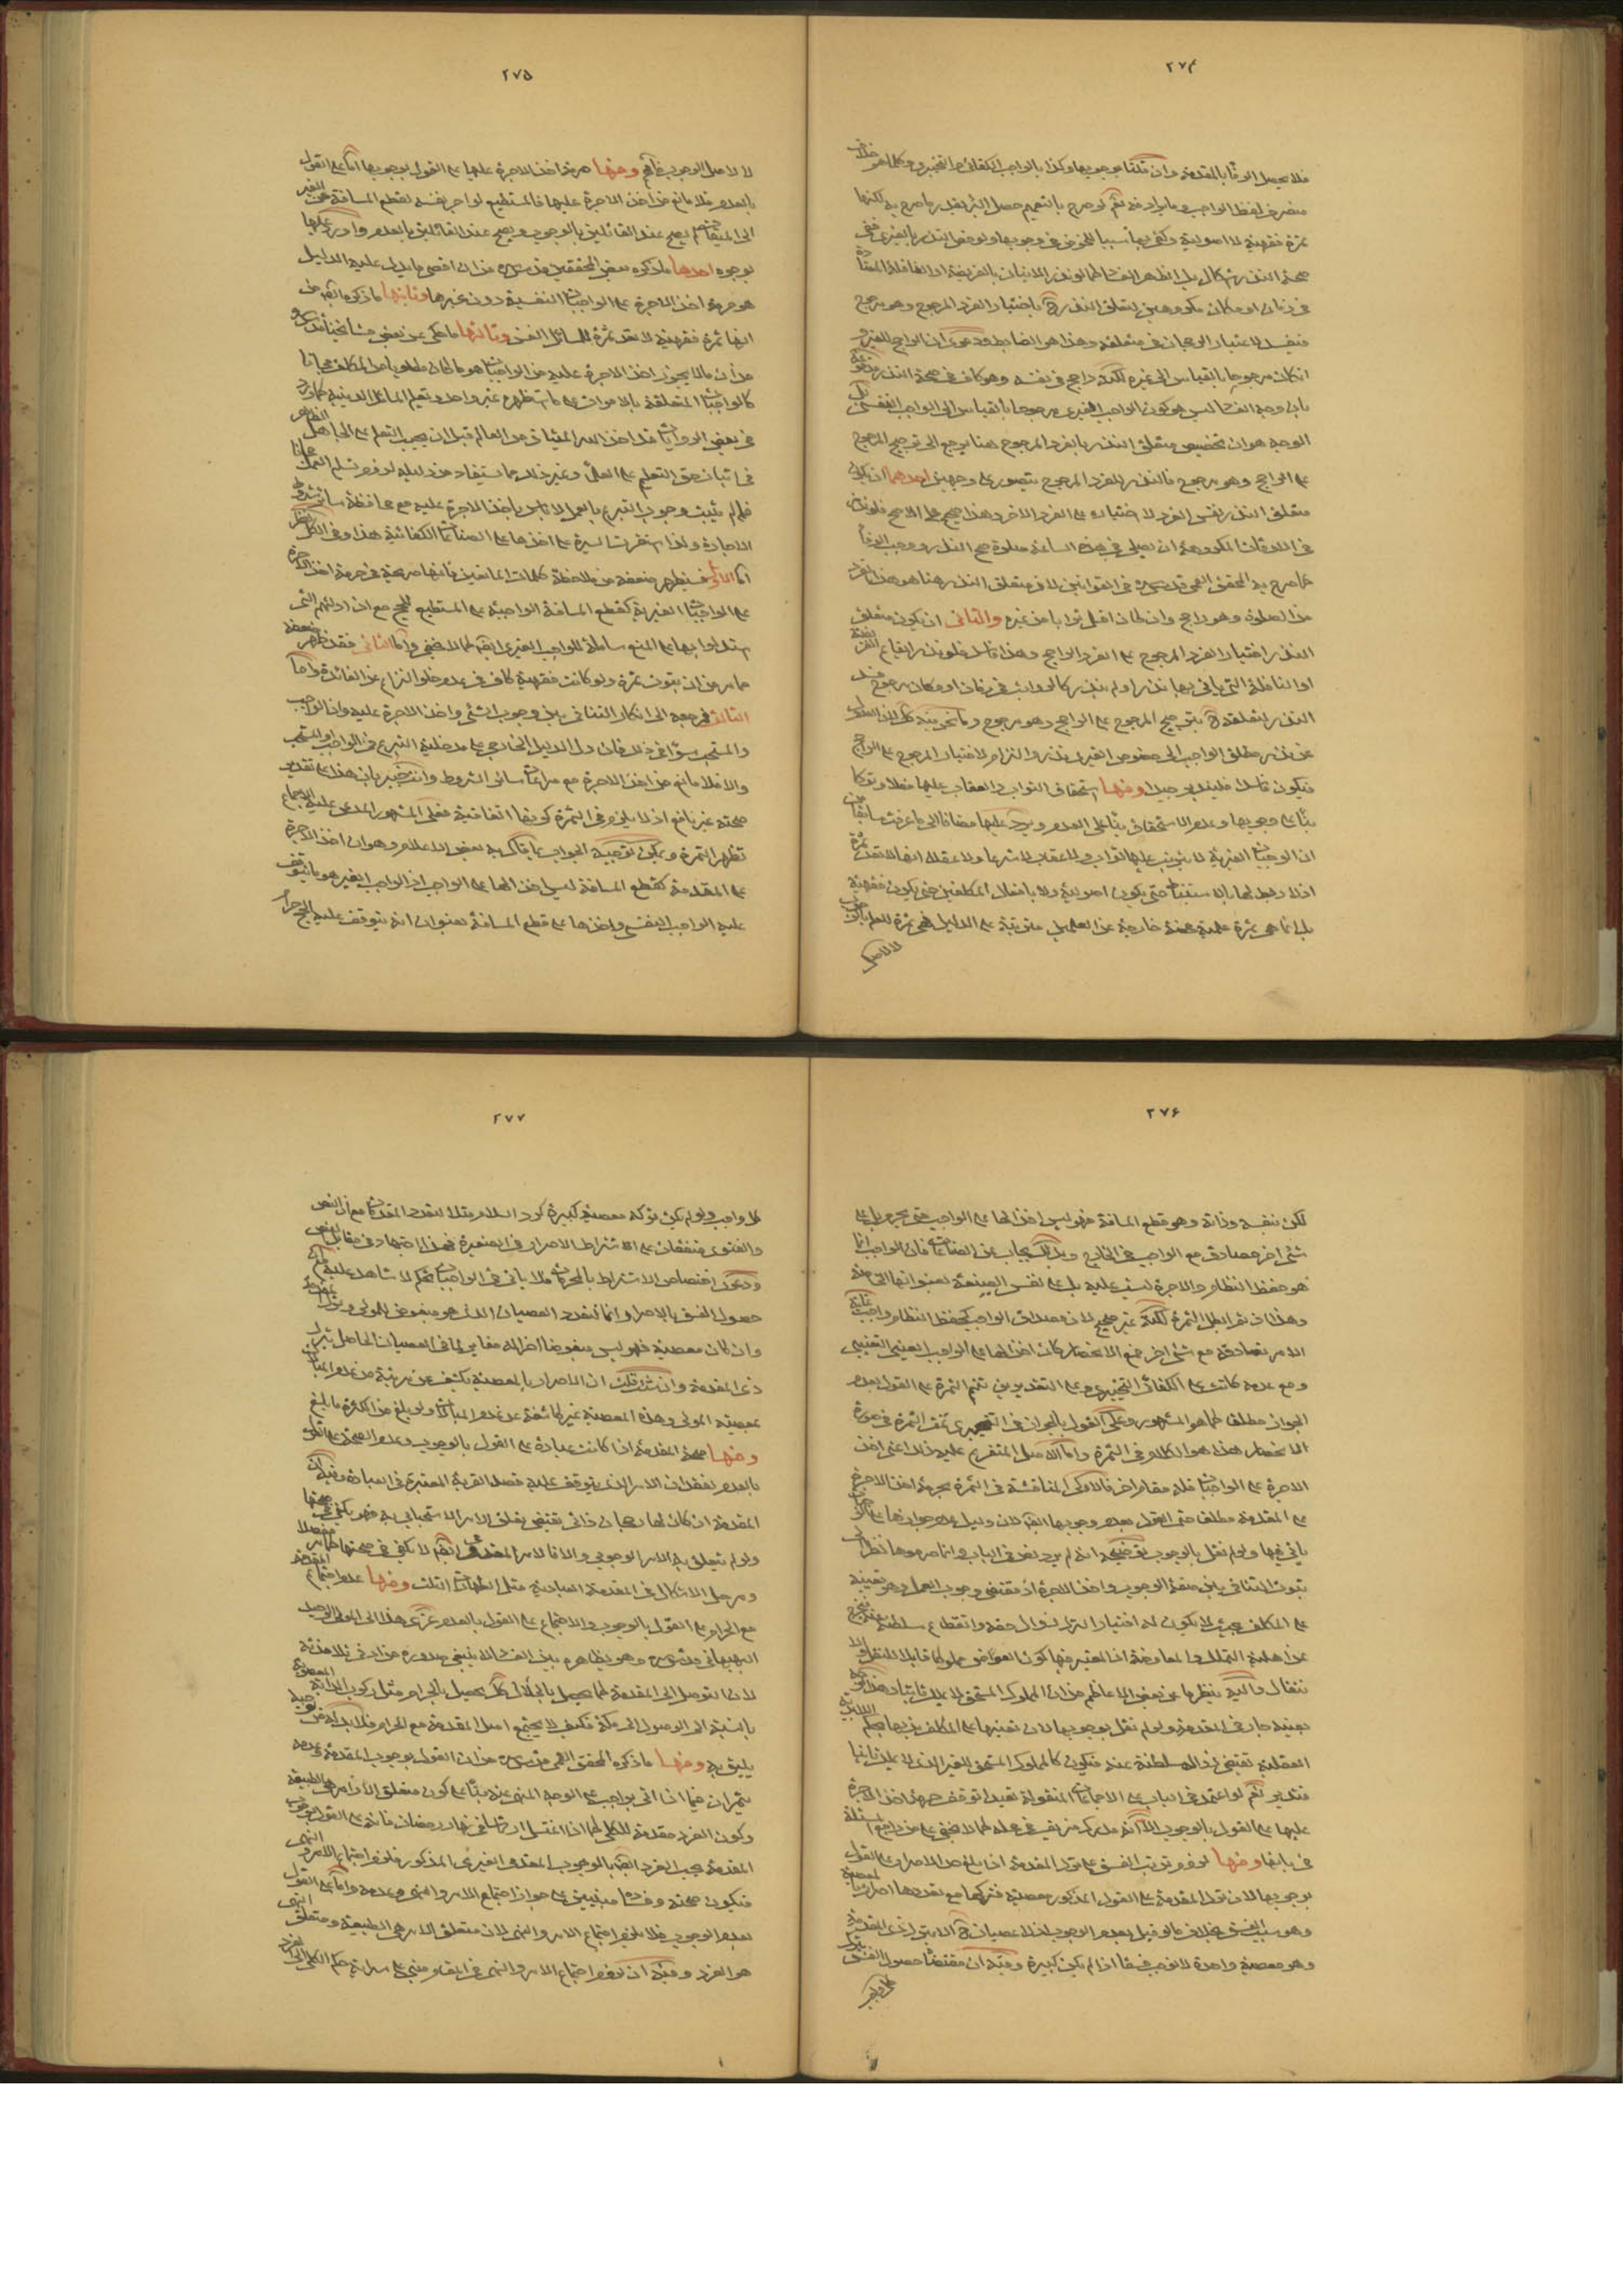 ٢٧٤
فلا يحصل الوفاء بالمقدمة وان قلنا بوجوبها وكذا بالواجب الكفائي والتخييري وكلما هو خلاف
منصرف لفظ الواجب وما يراد منه نعم لو صرح بالتعميم حصل البر بفعل ما صرح به لكنها
ثمرة فقهية لا اصولية وكفى بها سببا للخوض في وجوبها ولو خص النذر بالغيري ففي
صحة النذر اشكال بل الظهر الفساد كما لو نذر الاتيان بالفريضة او النافلة
في زمان او مكان مكروهين لتعلق النذر ح باختيار الفرد المرجوح وهو مرجوح
فيفسد لاعتبار الرجحان في متعلقه وهذا هو الضابط ودعوى ان الواجب الغيري
انكان مرجوحا بالقياس الى غيره لكنه راجح في نفسه وهو كاف في صحة النذر مدفوعة
بان وجه الفساد ليس هو كون الواجب الغيري مرجوحا بالقياس الى الواجب النفسي بل
الوجه هو ان تخصيص متعلق النذر بالفرد المرجوح هنا يرجع الى ترجيح المرجوح
على الراجح وهو مرجوح فالنذر للفرد المرجوح يتصور على وجهين احدهما ان يكون
متعلق النذر نفس الفرد لا اختياره على الفرد الاخر وهذا صحيح على الاصح فلو نذر
في الاوقات المكروهة ان يصلي في هذه الساعة صلوة صح النذر ووجب الوفاء
كما صرح به المحقق القمي قدس سره في القوانين لان متعلق النذر هنا هو هذا الفرد
من الصلوة وهو راجح وان كان اقل ثوابا من غيره والثاني ان يكون متعلق
النذر اختيار الفرد المرجوح على الفرد الراجح وهذا فاسد فلو نذر ايقاع الفريضة
او النافلة التي ياتي بها نذر او لم ينذر كالرواتب في زمان او مكان مرجوح فسد
النذر لتعلقه ح بترجيح المرجوح على الراجح وهو مرجوح وما نحن فيه كك لان العدول
عن نذر مطلق الواجب الى خصوص الغيري نذر والتزام لاختيار المرجوح على الراجح
فيكون فاسدا فليتدبر جيدا ومنها استحقاق الثواب والعقاب عليها فعلا وتركا
بناء على وجوبها وعدم الاستحقاق بناء على العدم ويرد عليها مضافا الى ما عرفت سابقا من
ان الوجبات الغيرية لا يترتب عليها ثواب ولا عقاب لا شرعا ولا عقلا انها لا تعد ثمرة
اذ لا دخل لها بالاستنباط حتى يكون اصولية ولا بافعال المكلفين حتى يكون فقهية
بل انما هي ثمرة علمية محضة خارجة عن العمل مترتبة على الدليل فهي ثمرة للعلم بالوجوب
لا لاصل
٢٧٥
لا لاصل الوجوب فافهم ومنها حرمة اخذ الاجرة عليها على القول بوجوبها اما على القول
بالعدم فلا مانع من اخذ الاجرة عليها فالمستطيع لو اجر نفسه لقطع المسافة عن الغير
الى الميقات لم يصح عند القائلين بالوجوب ويصح عند القائلين بالعدم واورد عليها
بوجوه احدها ما ذكره بعض المحققين قدس سره من ان اقصى ما يدل عليه الدليل
هو حرمة اخذ الاجرة على الواجبات النفسية دون غيرها وثانيها ما ذكره ايضا من
انها ثمرة فقهية لا تعد ثمرة للمسائل الفن وثالثها ما حكي عن بعض مشايخنا قدس سره
من ان ما لا يجوز اخذ الاجرة عليه من الواجبات هو ما كان مطلوبا من المكلف مجانا
كالواجبات المتعلقة بالاموات على ما استظهره غير واحد وتعليم المسائل الدينية كما ورد
في بعض الروايات قد اخذ الله الميثاق من العالم قبل ان يجب التعلم على الجاهل الظاهر
في اثبات حق التعليم على العلماء وغير ذلك مما يستفاد من دليله لزوم تسلم العمل مجانا
فلو لم يثبت وجوب التبرع بالعمل لا باس باخذ الاجرة عليه مع محافظة سائر شروط
الاجارة ولذا استقرت السيرة على اخذها على الصناعات الكفائية هذا وفي الكل نظر
اما الاول فيظهر ضعفه من ملاحظة كلمات المانعين فانها صريحة في حرمة اخذ الاجرة
على الواجبات الغيرية كقطع المسافة الواجبة على المستطيع للحج مع ان ادلتهم التي
استدلوا بها على المنع شاملة للواجب الغيري ايضا كما لا يخفى واما الثاني فقد ظهر ضعفه
مما مر من ان ثبوت ثمرة ولو كانت فقهية كاف في عدم خلو النزاع عن الفائدة واما
الثالث فمرجعه الى انكار التنافي بين وجوب الشيء واخذ الاجرة عليه وان الواجب
والمستحب سواء في ذلك فان دل الدليل الخارجي على مدخلية التبرع في الواجب او المستحب
والا فلا مانع من اخذ الاجرة مع مراعات سائر الشروط وانت خبير بان هذا على تقدير
صحته غير نافع اذ لا يلزم في الثمرة كونها اتفاقية فعلى المشهور المدعى عليه الاجماع
تظهر الثمرة ويمكن توجيه الجواب بما قاله بعض الاعلام وهو ان اخذ الاجرة
على المقدمة كقطع المسافة ليس اخذ لها على الواجب اذ الواجب الغير هو ما يتوقف
عليه الواجب النفسي واخذها على قطع المسافة بعنوان انه يتوقف عليه الحج حرام
٢٧٦
لكن بنفسه وذاته وهو قطع المسافة فهو ليس اخذ لها على الواجب حتى يحرم بل على
شيء اخر مصادق مع الواجب في الخارج وبذلك يجاب عن الصناعات فان الواجب انما
هو حفظ النظام والاجرة ليست عليه بل على نفس الصنعة بعنوانها الخاصة
وهذا وان كان يبطل الثمرة لكنه غير صحيح لان مصداق الواجب كحفظ النظام واجب غاية
الامر تصادقه مع شيء اخر فمع الانحصار كان اخذ لها على الواجب العيني التعييني
ومع عدمه كانت على الكفائي التخييري وعلى التقديرين تتم الثمرة على القول بعدم
الجواز مطلقا كما هو المشهور وعلى القول بالجواز في التخييري تتم الثمرة في صورة
الانحصار هذا هو الكلام في الثمرة واما اصل المتفرع عليه ذلك اعني اخذ
الاجرة على الواجبات فله مقام اخر فالاولى المناقشة في الثمرة بحرمة اخذ الاجرة
على المقدمة مطلقا حتى القول بعدم وجوبها ايضا لان دليل عدم جوازها على الواجب
ياتي فيها ولو لم نقل بالوجوب توضيحه انه لم يرد نص في الباب وانما حرموها نظرا الى
ثبوت التنافي بين صفة الوجوب واخذ الاجرة اذ مقتضى وجوب العمل وهو تعيينه
على المكلف بحيث لا يكون له اختيار الترك زوال حقه وانقطاع سلطنته عنه فيخرج
عن اهلية التملك والمعاوضة اذ المعتبر فيها كون العوض مملوكا قابلا للنقل والا
نتقال والديه ينظرها عن بعض الاعاظم من ان المملوك المستحق لا يملك ثانيا وهذا الوجه
بعينه جار في المقدمة ولو لم نقل بوجوبها لان تعينها على المكلف بحكم اللابدية
العقلية تقتضي زوال سلطنته عنه فيكون كالمملوك المستحق للغير الذي لا يملك ثانيا
فتدبر نعم لو اعتمد في الباب على الاجماعات المنقولة تعبدا توقف حرمة اخذ الاجرة
عليها على القول بالوجوب الا انه مدرك مزيف في محله كما لا يخفى على من راجع المسئلة
في بابها ومنها لزوم ترتب الفسق على ترك المقدمة اذا بلغ حد الاصرار على القول
بوجوبها لان ترك المقدمة على القول المذكور معصية فتركها مع تعددها اصرار بالمعصية
وهو سبب الفسق بخلاف ما لو قيل بعدم الوجوب اذ لا عصيان ح الا بترك ذي المقدمة
وهو معصية واحدة لا توجب فسقا اذا لم يكن كبيرة وفيه ان مقتضاه حصول الفسق بترك
كل واجب
٢٧٧
كل واجب ولو لم يكن تركه معصية كبيرة كرد السلام مثلا لتعدد المقدمات مع ان النص
والفتوى متفقان على اشتراط الاصرار في الصغيرة فهذا اجتهاد في مقابل النص
ودعوى اختصاص الاشتراط بالمحرمات فلا ياتي في الواجبات تحكم لا شاهد عليه
حصول الفسق بالاصرار انما لتعدد العصيان الذي هو مبغوض للمولى وترك المقدمة
وان كان معصية فهو ليس مبغوضا اخر له مغاير لما في العصيان الحاصل بترك
ذي المقدمة وان شئت قلت ان الاصرار بالمعصية يكشف عن مرتبة من عدم المبالاة
بمعصية المولى وهذه المعصية غير كاشفة عن عدم المبالات ولو بلغ من الكثرة ما بلغ
ومنها صحة المقدمة اذا كانت عبادة على القول بالوجوب وعدم الصحة على القول
بالعدم لفقدان الامر الذي يتوقف عليه قصد القربة المعتبرة في العبادة وفيه ان
المقدمة ان كان لها رجحان ذاتي يقتضي تعلق الامر الاستحبابي به فهو يكفي في صحتها
ولو لم يتعلق به الامر الوجوبي والا فالامر المقدمي ايضا لا يكفي في صحتها كما مر مفصلا
ومرجع الاشكال في المقدمة العبادية مثل الطهارات الثلث ومنها عدم اجتماع المقدمة
مع الحرام على القول بالوجوب والاجتماع على القول بالعدم عزى هذا الى المولى الوحيد
البهبهاني قدس سره وهو بظاهره بين الفساد لا ينبغي صدوره من ادنى تلامذته
لان التوصل الى المقدمة كما يحصل بالحلال كك يحصل بالحرام مثل ركوب الدابة المغصوبة
بالنسبة الى الوصول الى مكة فكيف لا يجتمع اصل المقدمة مع الحرام فلا بد له من توجيه
يليق به ومنها ما ذكره المحقق القمي قدس سره من ان القول بوجوب المقدمة وعدمه
يثمران فيما اذا اتى بواجب على الوجه المنهي عنه بناء على كون متعلق الاوامر هي الطبيعة
وكون الفرد مقدمة للكلي كما اذا اغتسل ارتماسا في نهار رمضان فانه على القول بوجوب
المقدمة يجب الفرد ايضا بالوجوب المقدمي الغيري المذكور فيلزم اجتماع الامر والنهي
فيكون صحته وفساده مبنيين على جواز اجتماع الامر والنهي وعدمه واما على القول
بعدم الوجوب فلا يلزم اجتماع الامر والنهي لان متعلق الامر هي الطبيعة ومتعلق النهي
هو الفرد وفيه ان لزوم اجتماع الامر والنهي في المقام مبني على سراية حكم الكلي الى الفرد